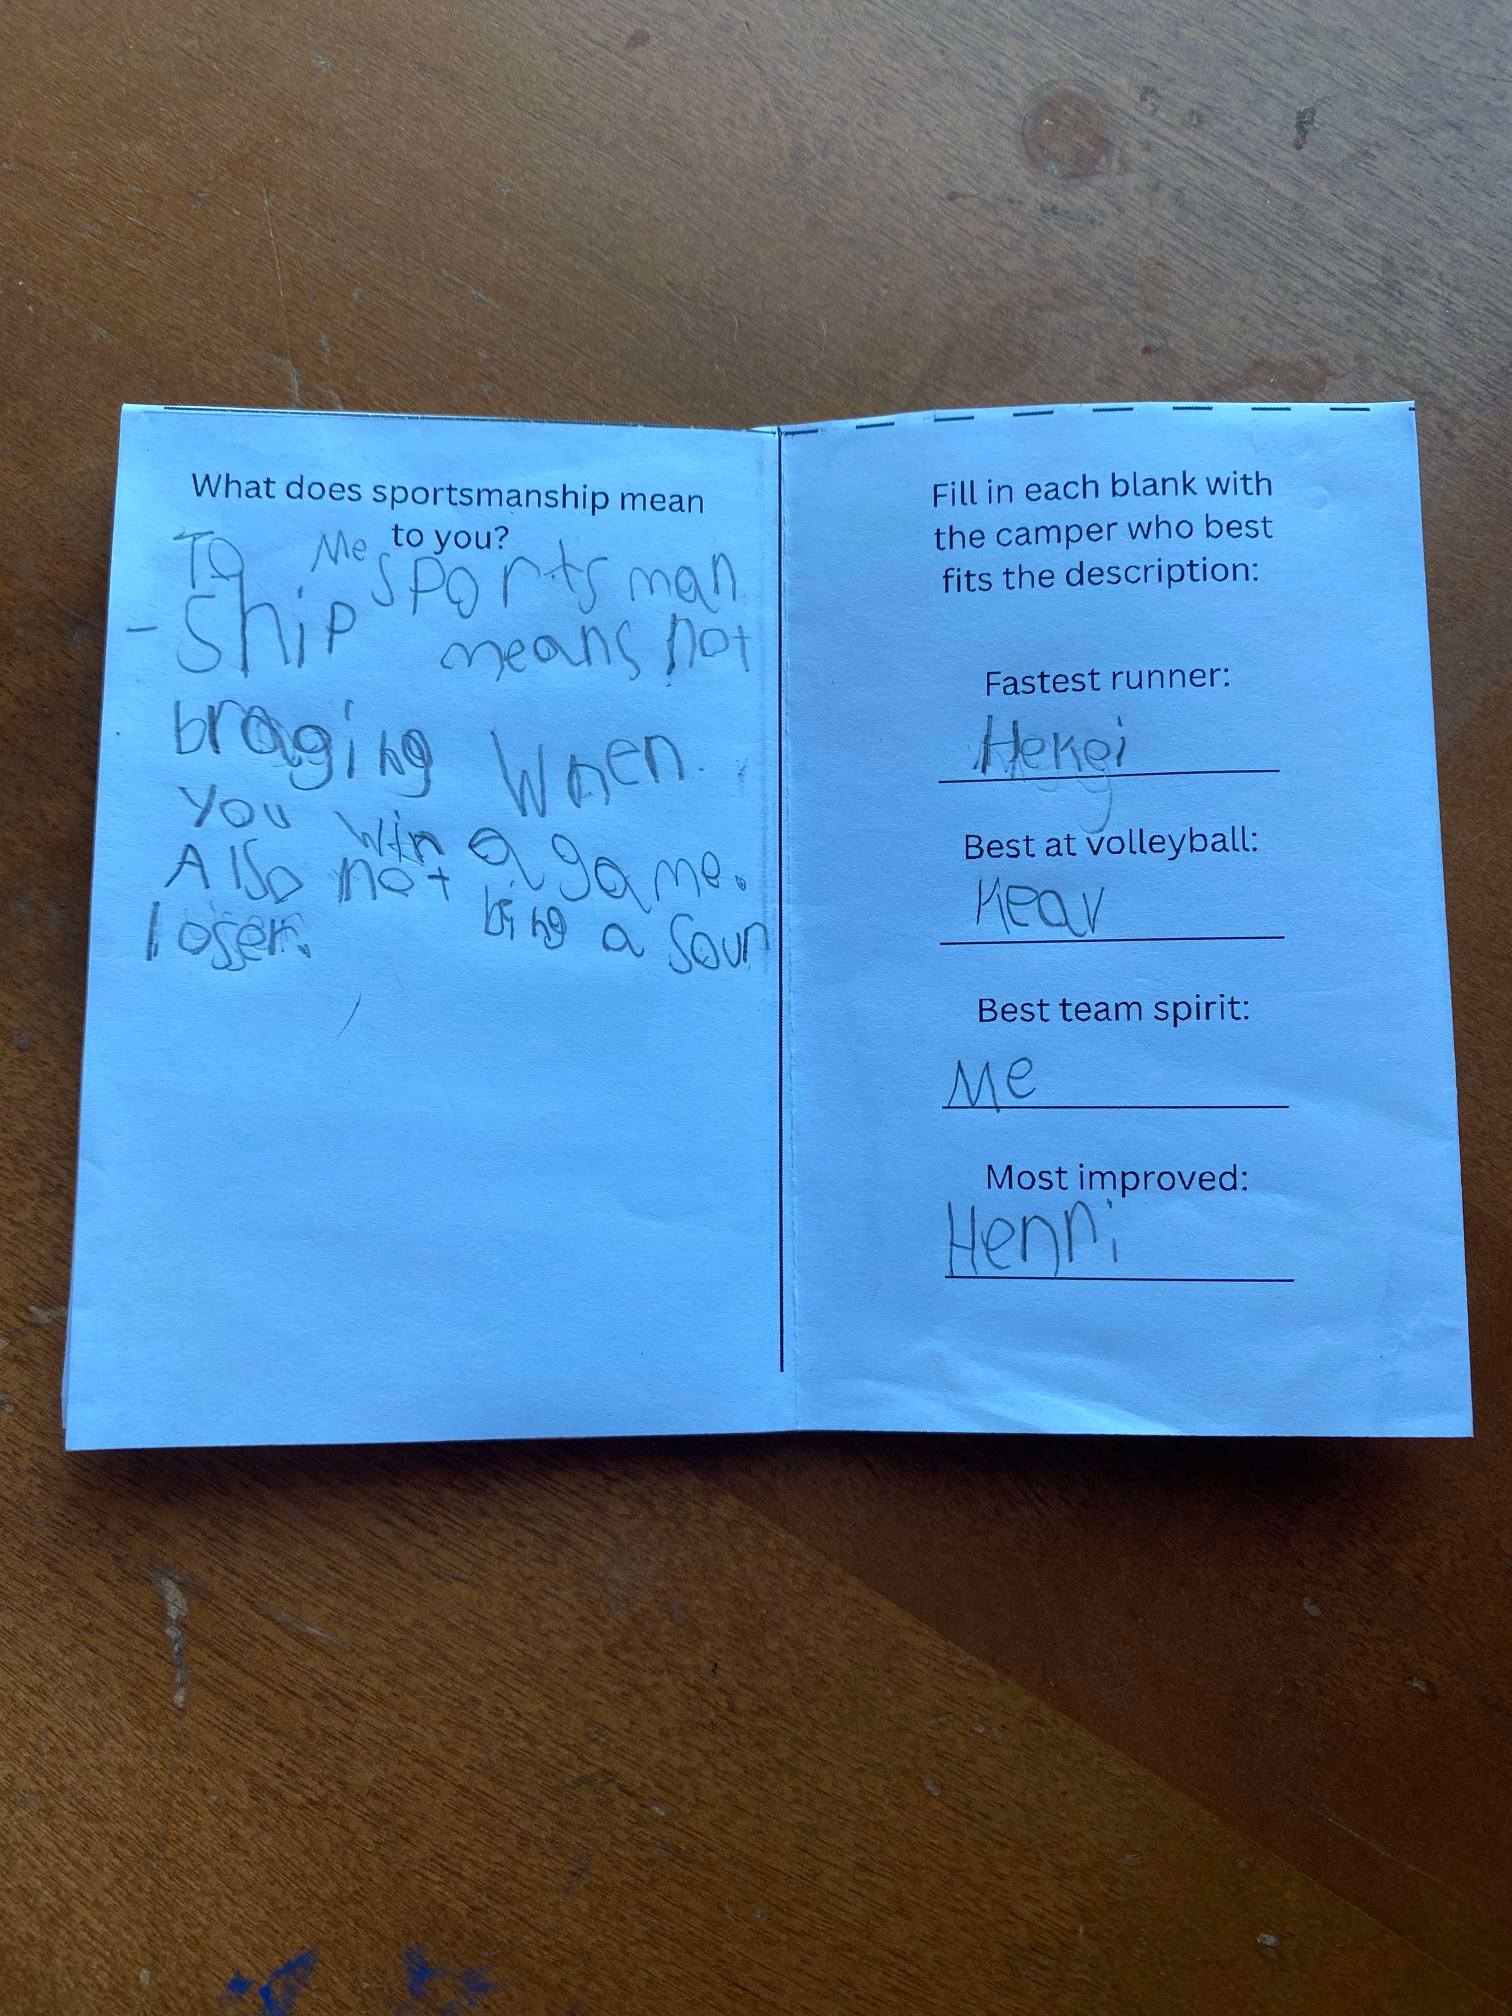 What does sportsmanship mean
to you?
To Me sportsman
-Ship means not
braging When
you win a game.
Also not bing a sour
loser.
Fill in each blank with
the camper who best
fits the description:
Fastest runner:
Best at volleyball:
Keav
Best team spirit:
Me
Most improved:
Henri